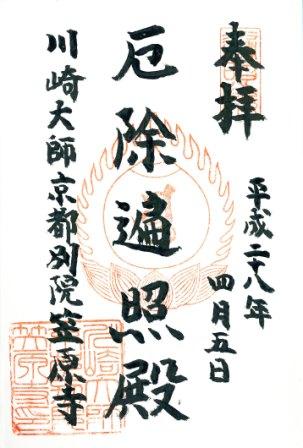 奉拝
平成二十八年
四月五日
厄除遍照殿
川崎大師京都別院笠原寺